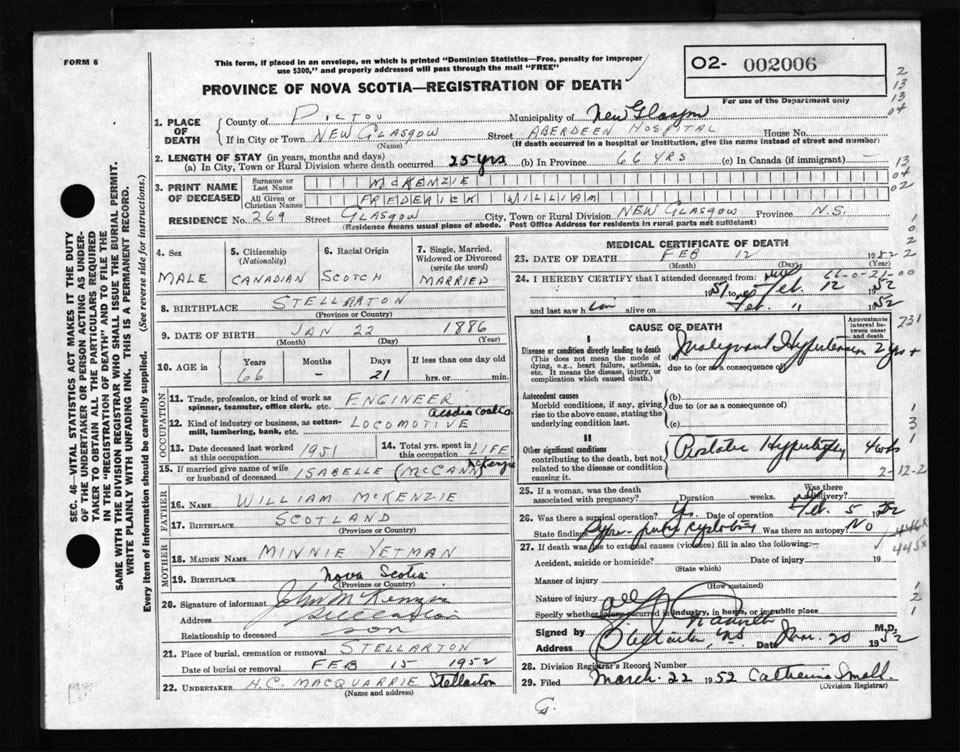 FORM 6
This form, if placed in an envelope, on which is printed "Dominion Statistics—Free, penalty for improper
use $300," and properly addressed will pass through the mail "FREE"
O2- 002006
For use of the Department only
PROVINCE OF NOVA SCOTIA—REGISTRATION OF DEATH
1. PLACE OF DEATH
County of PICTOU Municipality of New Glasgow
If in City or Town NEW GLASGOW Street ABERDEEN HOSPITAL House No.
(Name) (If death occurred in a hospital or institution, give the name instead of street and number)
2. LENGTH OF STAY (in years, months and days)
(a) In City, Town or Rural Division where death occurred 25 yrs (b) In Province 66 YRS (c) In Canada (if immigrant) —
3. PRINT NAME OF DECEASED
Surname or Last Name McKENZIE
All Given or Christian Names FREDERICK WILLIAM
RESIDENCE No. 269 Street GLASGOW City, Town or Rural Division NEW GLASGOW Province N.S.
(Residence means usual place of abode. Post Office Address for residents in rural parts not sufficient)
4. Sex
MALE
5. Citizenship (Nationality)
CANADIAN
6. Racial Origin
SCOTCH
7. Single, Married, Widowed or Divorced (write the word)
MARRIED
8. BIRTHPLACE STELLARTON
(Province or Country)
9. DATE OF BIRTH JAN 22 1886
(Month) (Day) (Year)
10. AGE in
Years Months Days If less than one day old
66 — 21 hrs. or min.
OCCUPATION
11. Trade, profession, or kind of work as spinner, teamster, office clerk, etc. ENGINEER
12. Kind of industry or business, as cotton-mill, lumbering, bank, etc. LOCOMOTIVE Acadia Coal Co
13. Date deceased last worked at this occupation 1951
14. Total yrs. spent in this occupation LIFE
15. If married give name of wife or husband of deceased ISABELLE (McCANN) McKenzie
FATHER
16. NAME WILLIAM McKENZIE
17. BIRTHPLACE SCOTLAND
MOTHER
18. MAIDEN NAME MINNIE YETMAN
19. BIRTHPLACE Nova Scotia
(Province or Country)
20. Signature of informant John McKenzie
Address Stellarton
Relationship to deceased SON
21. Place of burial, cremation or removal STELLARTON
Date of burial or removal FEB 15 1952
22. UNDERTAKER H.C. MACQUARRIE Stellarton
(Name and address)
MEDICAL CERTIFICATE OF DEATH
23. DATE OF DEATH FEB 12 1952
(Month) (Day) (Year)
24. I HEREBY CERTIFY that I attended deceased from: 66-0-21-00
1951 to Feb. 12 1952
and last saw him alive on Feb. " 1952
CAUSE OF DEATH
Approximate interval between onset and death
I
Disease or condition directly leading to death
(This does not mean the mode of dying, e.g., heart failure, asthenia, etc. It means the disease, injury, or complication which caused death.)
Malignant Hypertension 2 yrs +
due to (or as a consequence of)
Antecedent causes
Morbid conditions, if any, giving rise to the above cause, stating the underlying condition last.
(b)
due to (or as a consequence of)
(c)
II
Other significant conditions contributing to the death, but not related to the disease or condition causing it.
Prostatic Hypertrophy 4 wks
2-12-2
25. If a woman, was the death associated with pregnancy? Duration weeks. Was there delivery?
26. Was there a surgical operation? Yes Date of operation Feb. 5 1952
State findings Supra-pubic cystotomy Was there an autopsy? No
27. If death was due to external causes (violence) fill in also the following:—
Accident, suicide or homicide? Date of injury 19
(State which)
Manner of injury
(How sustained)
Nature of injury
Specify whether injury occurred in industry, in home, or in public place
Signed by M.D.
Address Stellarton, N.S. Date Mar. 20 1952
28. Division Registrar's Record Number
29. Filed March 22 1952 Catherine Small
(Division Registrar)
G.
SEC. 46—VITAL STATISTICS ACT MAKES IT THE DUTY
OF THE UNDERTAKER OR PERSON ACTING AS UNDER-
TAKER TO OBTAIN ALL THE PARTICULARS REQUIRED
IN THE "REGISTRATION OF DEATH" AND TO FILE THE
SAME WITH THE DIVISION REGISTRAR WHO SHALL ISSUE THE BURIAL PERMIT.
WRITE PLAINLY WITH UNFADING INK. THIS IS A PERMANENT RECORD.
Every item of information should be carefully supplied. (See reverse side for instructions.)
2
13
13
04
13
04
02
1
0
2
2
231
1
3
1
445X
1
2
1